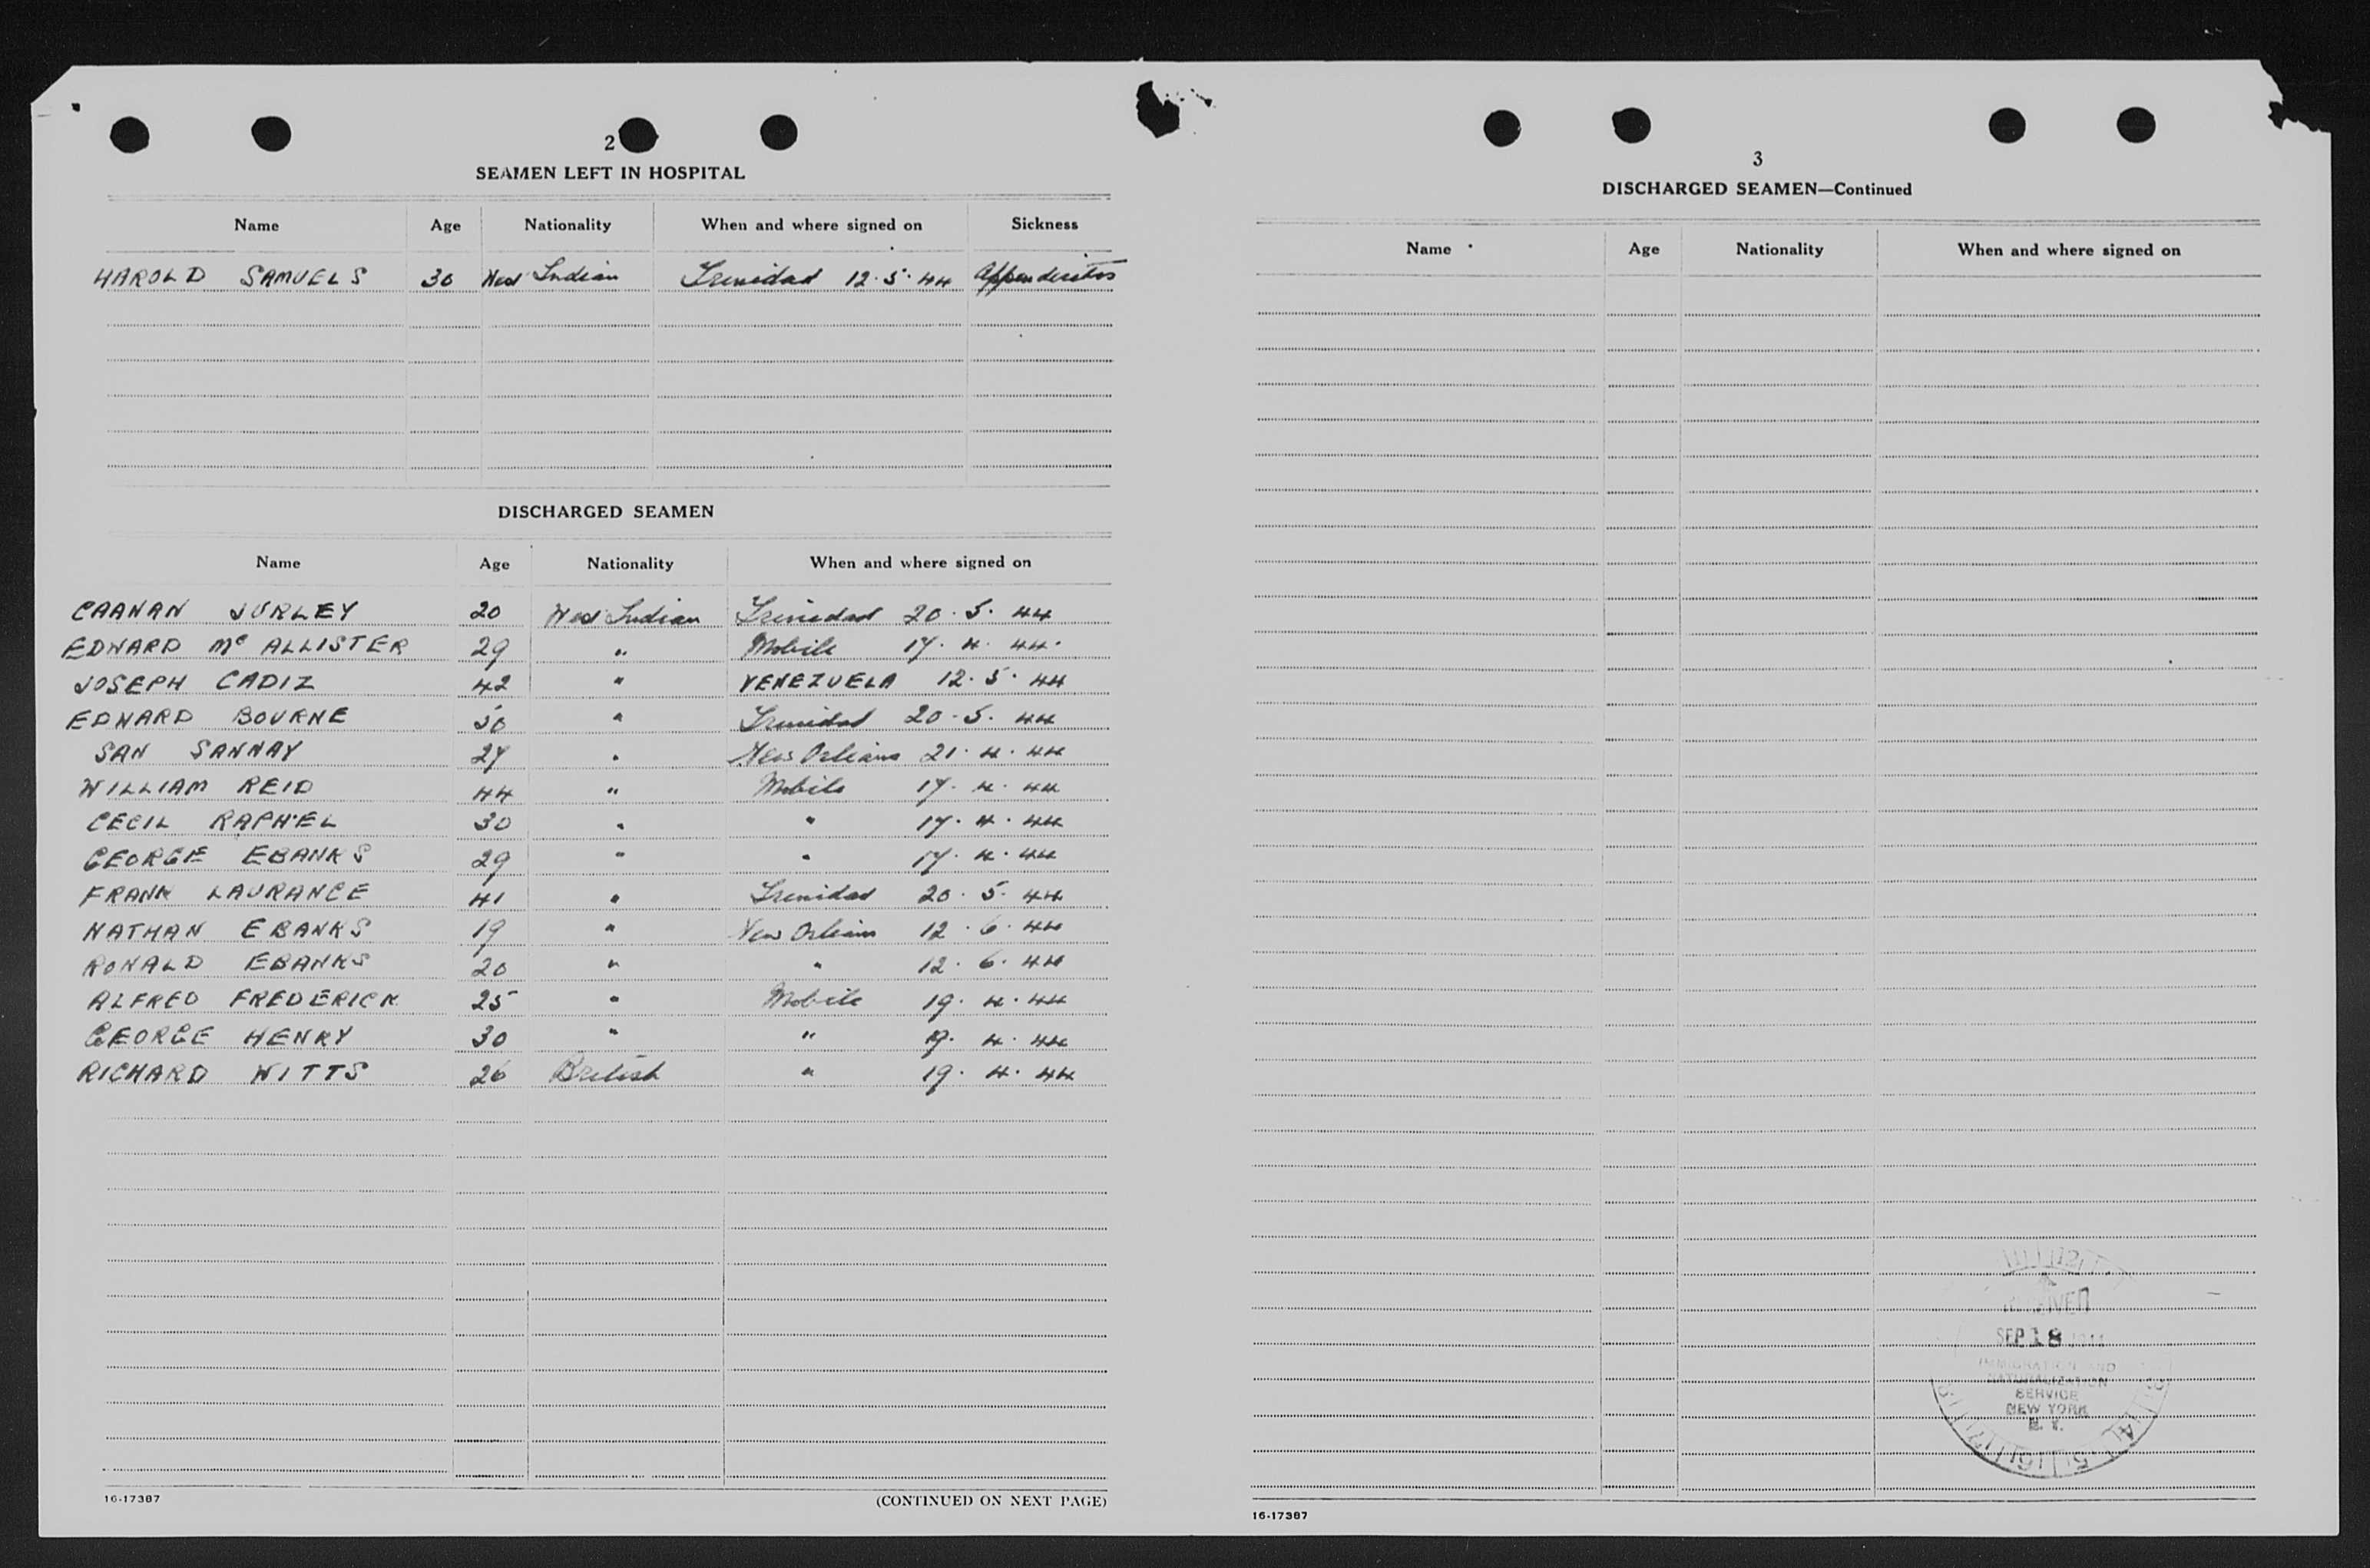 2
SEAMEN LEFT IN HOSPITAL
Name Age Nationality When and where signed on Sickness
HAROLD SAMUELS 30 West Indian Trinidad 12.5.44 Appendicitis
DISCHARGED SEAMEN
Name Age Nationality When and where signed on
CAANAN JURLEY 20 West Indian Trinidad 20.5.44
EDWARD Mc ALLISTER 29 " Mobile 17.4.44.
JOSEPH CADIZ 42 " VENEZUELA 12.5.44
EDWARD BOURNE 30 " Trinidad 20.5.44
SAN SANNAY 27 " New Orleans 21.4.44
WILLIAM REID 44 " Mobile 17.4.44
CECIL RAPH'EL 30 " " 17.4.44
GEORGE EBANKS 29 " " 17.4.44
FRANK LAURANCE 41 " Trinidad 20.5.44
NATHAN EBANKS 19 " New Orleans 12.6.44
RONALD EBANKS 20 " " 12.6.44
ALFRED FREDERICK 25 " Mobile 19.4.44
GEORGE HENRY 30 " " 19.4.44
RICHARD WITTS 26 British " 19.4.44
16-17387 (CONTINUED ON NEXT PAGE)
3
DISCHARGED SEAMEN—Continued
Name Age Nationality When and where signed on
RECEIVED
SEP 18 1944
IMMIGRATION AND
NATURALIZATION
SERVICE
NEW YORK
N. Y.
16-17387